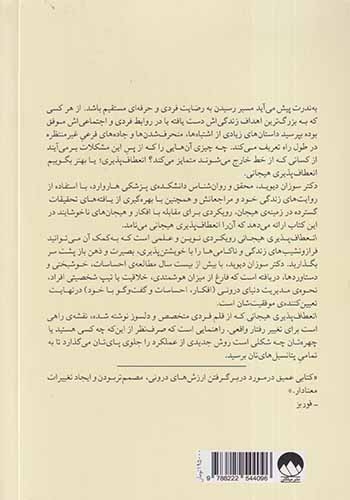 به‌ندرت پیش می‌آید مسیر رسیدن به رضایت فردی و حرفه‌ای مستقیم باشد. از هر کسی
که به بزرگ‌ترین اهداف زندگی‌اش دست یافته یا در روابط فردی و اجتماعی‌اش موفق
بوده بپرسید داستان‌های زیادی از اشتباه‌ها، منحرف‌شدن‌ها و جاده‌های فرعی غیرمنتظره
در طول راه تعریف می‌کند. چه چیزی آن‌هایی را که از پس این مشکلات برمی‌آیند
از کسانی که از خط خارج می‌شوند متمایز می‌کند؟ انعطاف‌پذیری؛ یا بهتر بگوییم
انعطاف‌پذیری هیجانی.
دکتر سوزان دیوید، محقق و روان‌شناس دانشکده‌ی پزشکی هاروارد، با استفاده از
روایت‌های زندگی خود و مراجعانش و همچنین با بهره‌گیری از یافته‌های تحقیقات
گسترده در زمینه‌ی هیجان، رویکردی برای مقابله با افکار و هیجان‌های ناخوشایند در
این کتاب ارائه می‌دهد که آن‌را انعطاف‌پذیری هیجانی می‌نامد.
انعطاف‌پذیری هیجانی رویکردی نوین و علمی است که به‌کمک آن می‌توانید
فرازونشیب‌های زندگی و ناکامی‌ها را با خویشتن‌پذیری، بصیرت و ذهن باز پشت سر
بگذارید. دکتر سوزان دیوید، با بیش از بیست سال مطالعه‌ی احساسات، خوشبختی و
دستاوردها، دریافته است که فارغ از میزان هوشمندی، خلاقیت یا تیپ شخصیتی افراد،
نحوه‌ی مدیریت دنیای درونی (افکار، احساسات و گفت‌وگو با خود) درنهایت
تعیین‌کننده‌ی موفقیت‌شان است.
انعطاف‌پذیری هیجانی که از قلم فردی متخصص و دلسوز نوشته شده، نقشه‌ی راهی
است برای تغییر رفتار واقعی. راهنمایی است که صرف‌نظر از این‌که چه کسی هستید یا
چهره‌تان چه شکلی است روش جدیدی از عملکرد را جلوی پای‌تان می‌گذارد تا به
تمامیِ پتانسیل‌های‌تان برسید.
«کتابی عمیق درمورد دربرگرفتن ارزش‌های درونی، مصمم‌تربودن و ایجاد تغییرات
معنادار.»
ـ فوربز
9 788222 544096